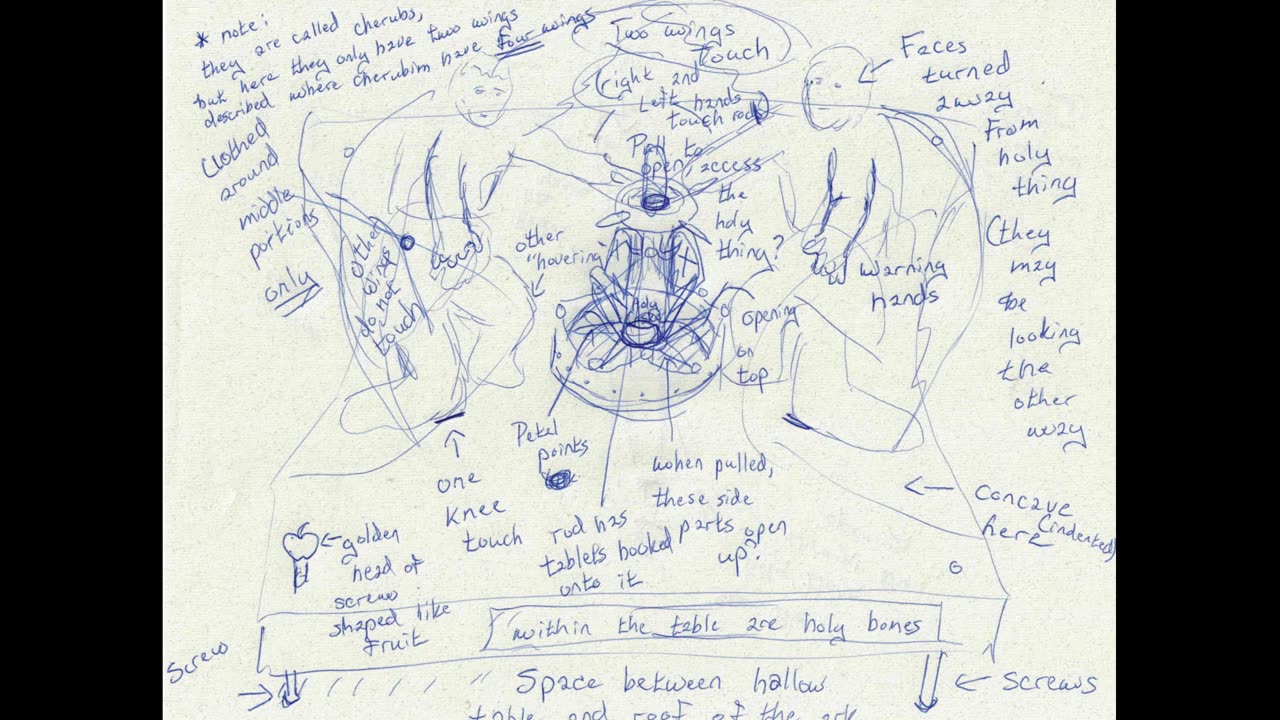 * note:
they are called cherubs,
but here they only have two wings
described where cherubim have four wings
Clothed
around
middle
portions
only
Two wings
touch
(right and
Left hands
touch rod)
Pull to
open, access
the
holy
thing?
Faces
turned
away
From
holy
thing
(they
may
be
looking
the
other
way
other
wings
do not
touch
other
"hovering"
Holy
warning
hands
opening
on
top
Petal
points
one
knee
touch
rod has
tablets hooked
onto it
when pulled,
these side
parts open
up?
concave
here (indented)
golden
head of
screw
shaped like
fruit
within the table are holy bones
Screw
Space between hallow
table and roof of the ark
Screws